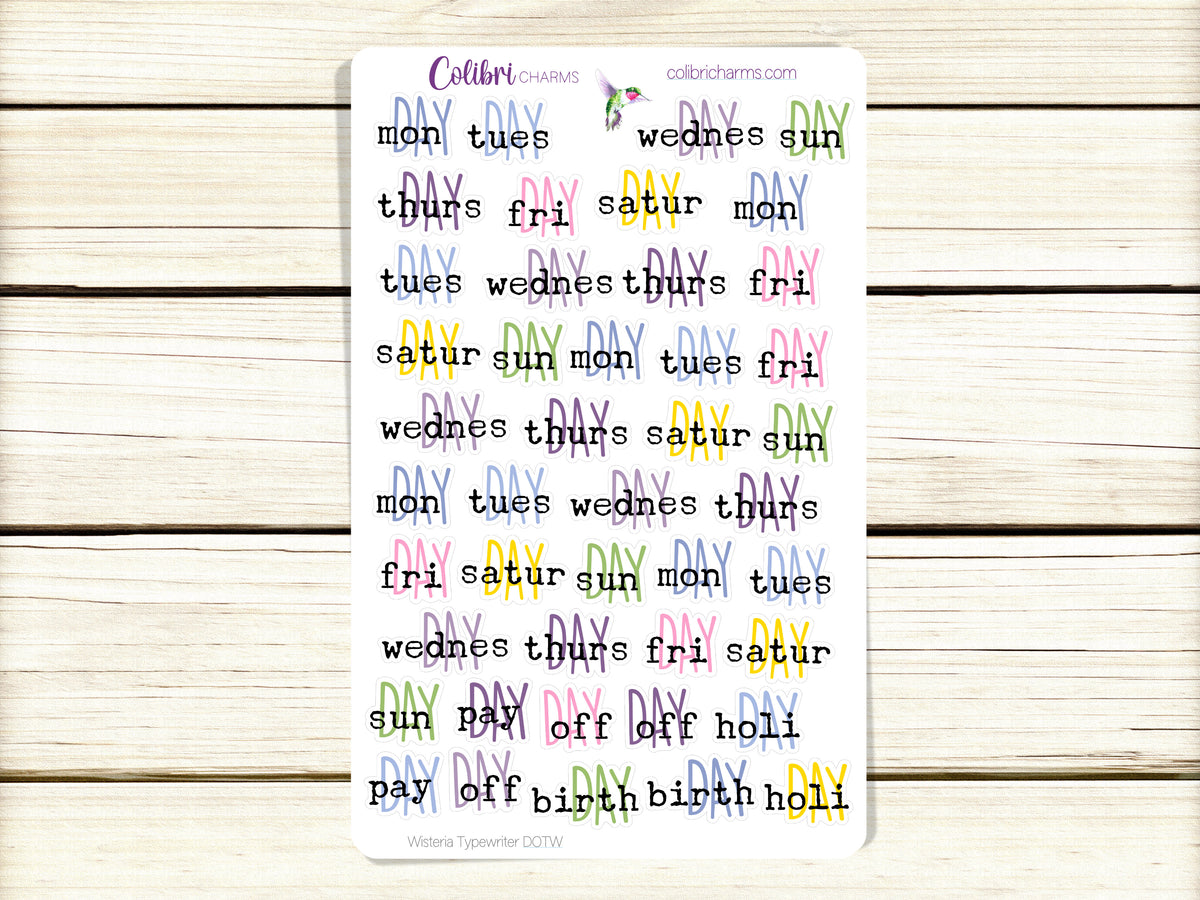 Colibri CHARMS colibricharms.com
monDAY tuesDAY wednesDAY sunDAY
thursDAY friDAY saturDAY monDAY
tuesDAY wednesDAY thursDAY friDAY
saturDAY sunDAY monDAY tuesDAY friDAY
wednesDAY thursDAY saturDAY sunDAY
monDAY tuesDAY wednesDAY thursDAY
friDAY saturDAY sunDAY monDAY tuesDAY
wednesDAY thursDAY friDAY saturDAY
sunDAY payDAY offDAY offDAY holiDAY
payDAY offDAY birthDAY birthDAY holiDAY
Wisteria Typewriter DOTW